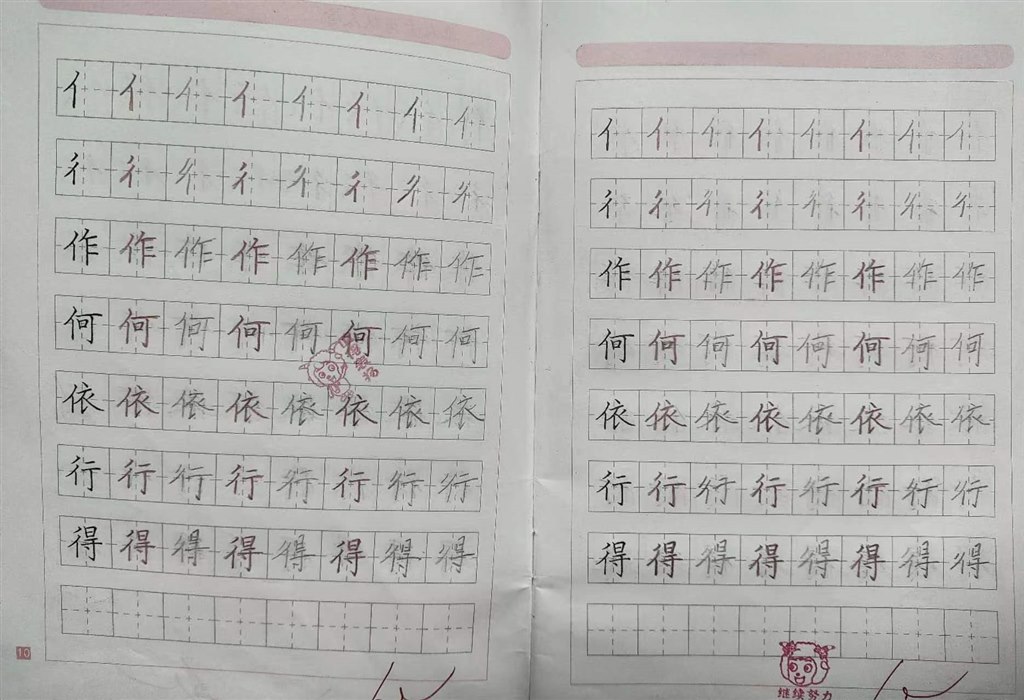 亻亻亻亻亻亻亻亻
彳彳彳彳彳彳彳彳
作作作作作作作作
何何何何何何何何
依依依依依依依依
行行行行行行行行
得得得得得得得得
10
亻亻亻亻亻亻亻亻
彳彳彳彳彳彳彳彳
作作作作作作作作
何何何何何何何何
依依依依依依依依
行行行行行行行行
得得得得得得得得
继续努力